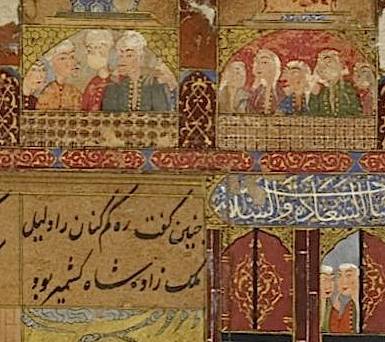 چنین گفت ره گم کنان را دلیل
ملک زاده شاه کشمیر بود
السعادة والسلامة